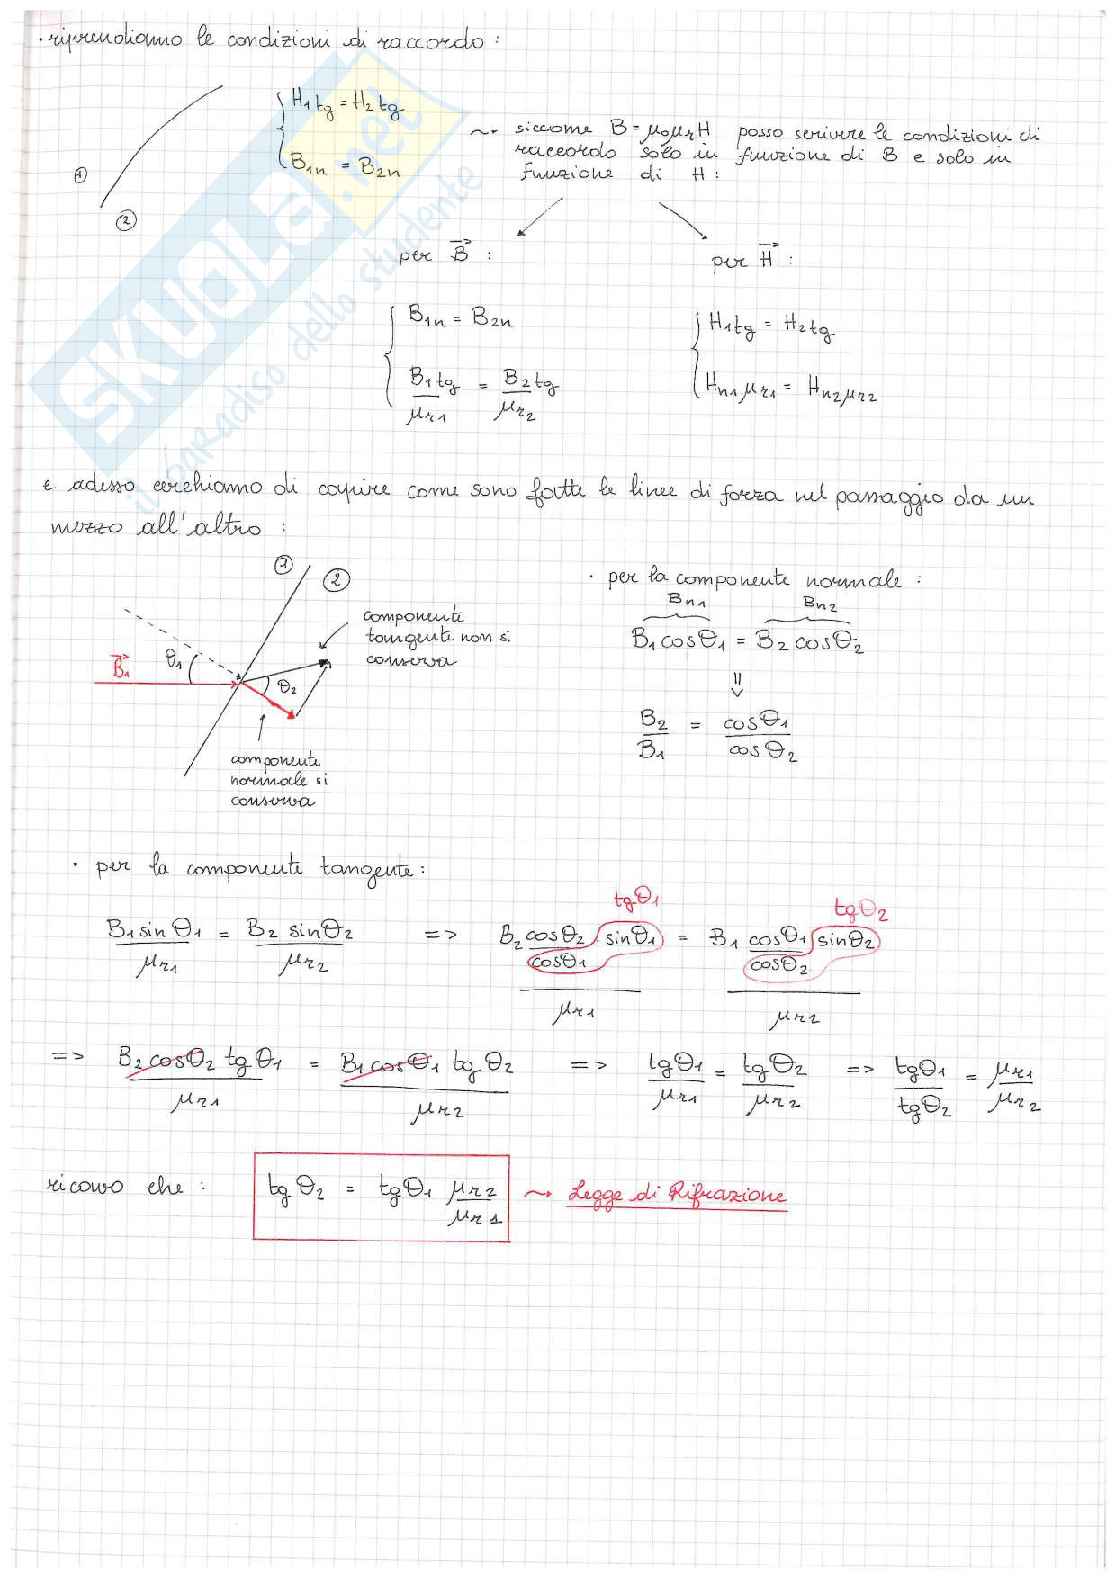 · riprendiamo le condizioni di raccordo :
H₁tg = H₂tg
B₁n = B₂n
① ②
~ siccome B = μ₀μᵣH posso scrivere le condizioni di
raccordo solo in funzione di B e solo in
funzione di H :
per B⃗ :
per H⃗ :
B₁n = B₂n
B₁tg/μr₁ = B₂tg/μr₂
H₁tg = H₂tg
Hn₁μr₁ = Hn₂μr₂
SKUOLA.net
il paradiso dello studente
e adesso cerchiamo di capire come sono fatte le linee di forza nel passaggio da un
mezzo all'altro :
① ②
componente
tangente non si
conserva
B⃗₁ θ₁ θ₂
componente
normale si
conserva
· per la componente normale :
Bn₁ Bn₂
B₁cosθ₁ = B₂cosθ₂
⇓
B₂/B₁ = cosθ₁/cosθ₂
· per la componente tangente :
tgθ₁ tgθ₂
B₁sinθ₁/μr₁ = B₂sinθ₂/μr₂ => B₂ cosθ₂/cosθ₁ · sinθ₁ / μr₁ = B₁ cosθ₁/cosθ₂ sinθ₂ / μr₂
=> B₂cosθ₂ tgθ₁/μr₁ = B₁cosθ₁ tgθ₂/μr₂ => tgθ₁/μr₁ = tgθ₂/μr₂ => tgθ₁/tgθ₂ = μr₁/μr₂
ricavo che : tgθ₂ = tgθ₁ μr₂/μr₁ ~ Legge di Rifrazione